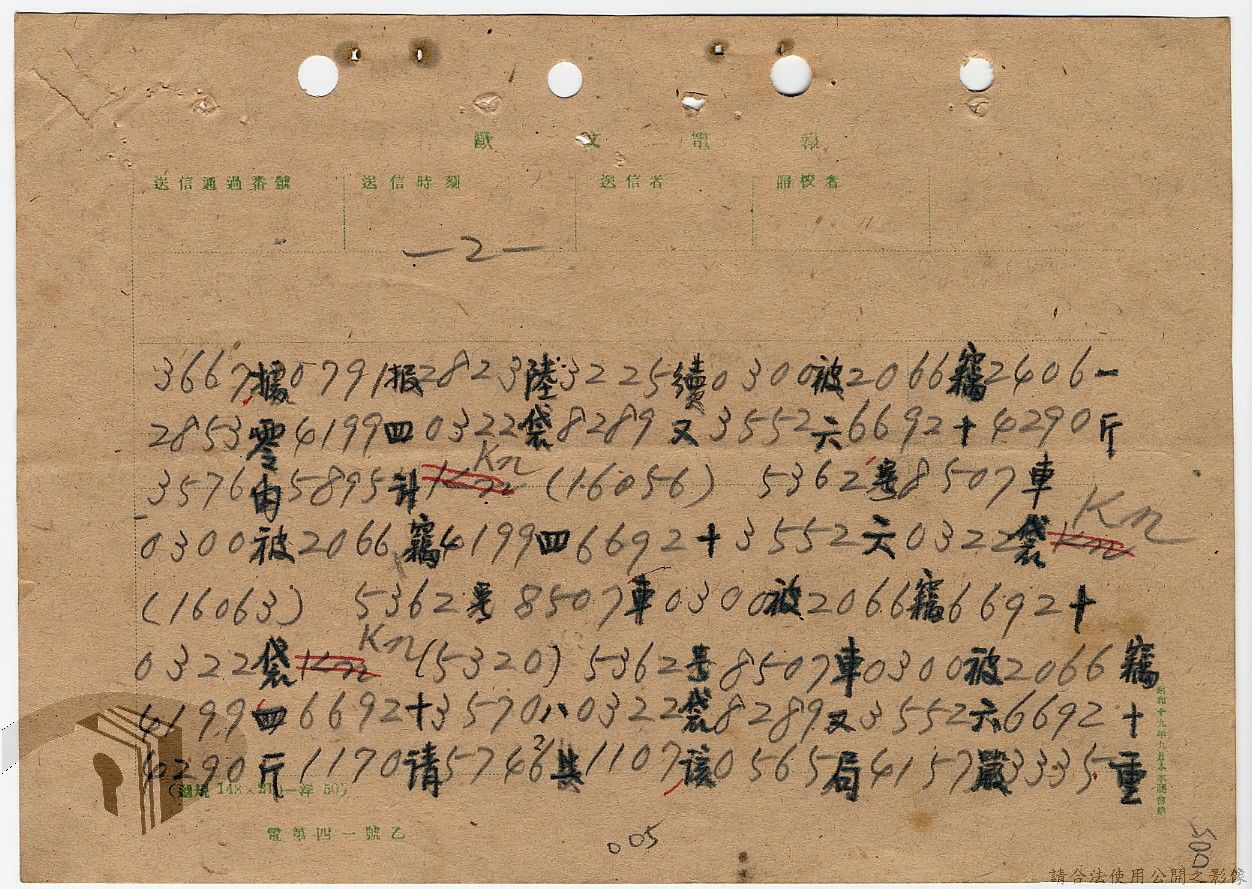 歐文電報
送信通過番號 送信時刻 送信者 照校者
—2—
3667據0791报2823陸3225續0300被2066竊2406一
2853零4199四0322袋8289又3552六6692十4290斤
3576由5895計Kn (16056) 5362號8507車
0300被2066竊4199四6692十3552六0322袋Kn
(16063) 5362號8507車0300被2066竊6692十
0322袋Kn(5320) 5362號8507車0300被2066竊
4199四6692十3570八0322袋8289又3552六6692十
4290斤1170请5746其1107該0565局4157嚴3335重
148×210
電第四一號乙
005
005
請合法使用公開之影像